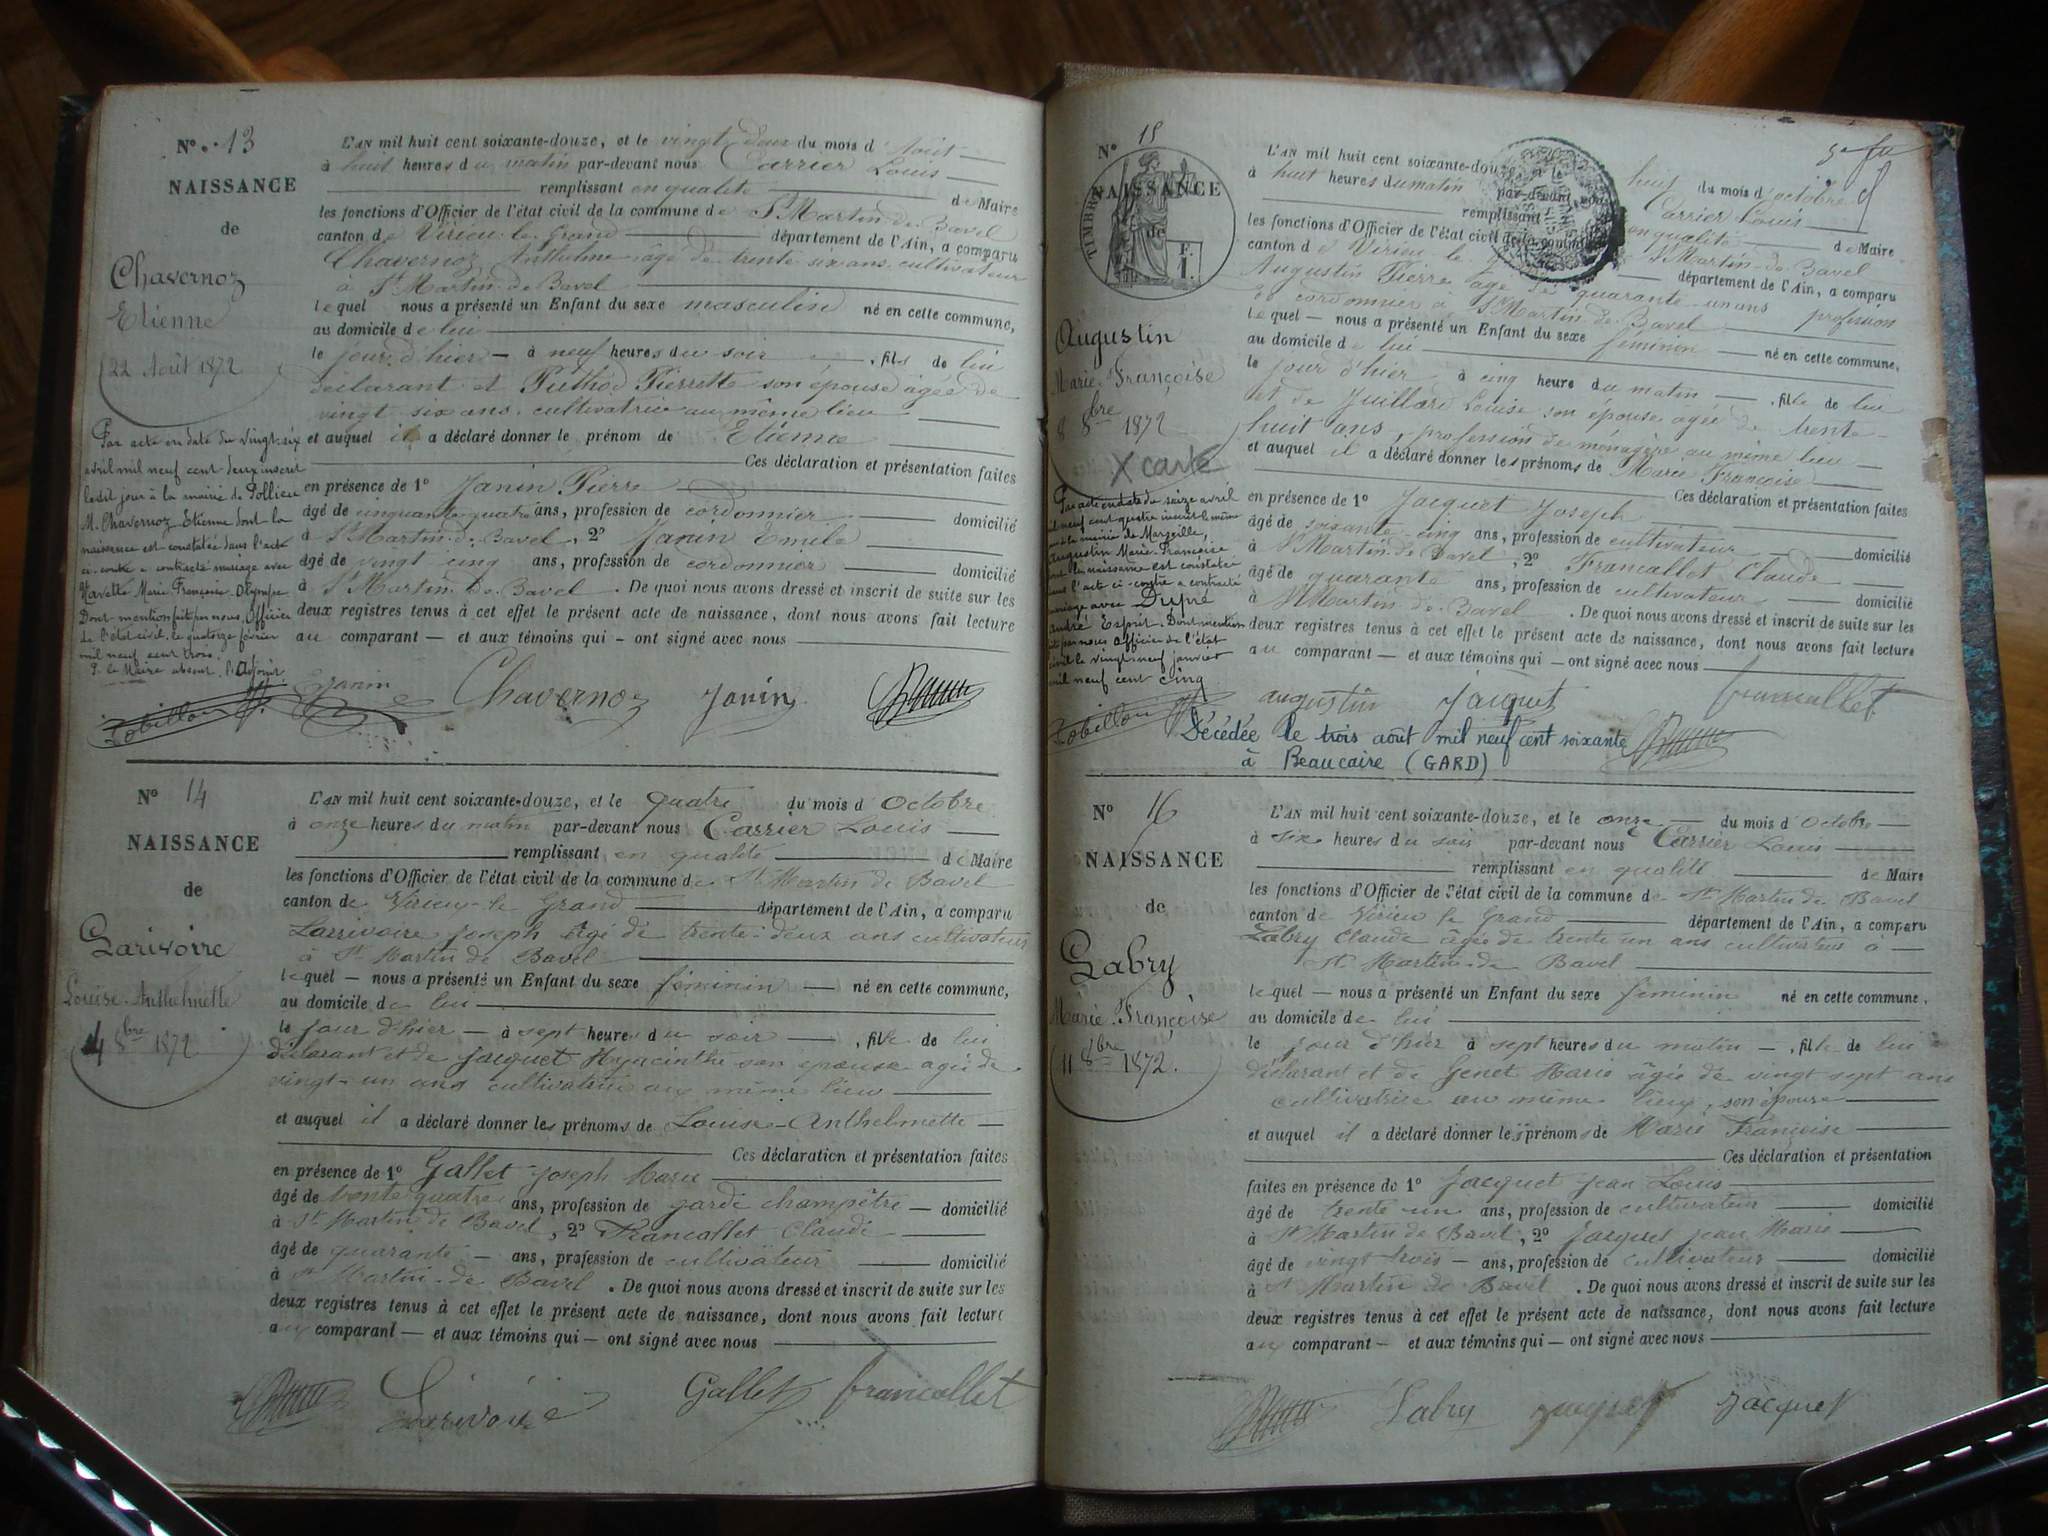 N° 13
NAISSANCE
de
Chavernoz
Etienne
22 Août 1872
Par acte en date du vingt-six
avril mil neuf cent deux inscrit
ledit jour à la mairie de Pollieu
M. Chavernoz Etienne dont la
naissance est constatée dans l'acte
ci-contre a contracté mariage avec
Marie Françoise Olympe
Dont mention fait par nous Officier
de l'état civil, le quatorze février
mil neuf cent trois.
P. le Maire absent, l'Adjoint.
L'AN mil huit cent soixante-douze, et le vingt deux du mois d'Août
à huit heures du matin par-devant nous Carrier Louis
remplissant en qualité de Maire
les fonctions d'Officier de l'état civil de la commune de St Martin-de-Bavel
canton de Virieu-le-Grand département de l'Ain, a comparu
Chavernoz Anthelme âgé de trente six ans cultivateur
à St Martin-de-Bavel
lequel nous a présenté un Enfant du sexe masculin né en cette commune,
au domicile de lui
le jour d'hier à neuf heures du soir, fils de lui
déclarant et Puthod Pierrette son épouse âgée de
vingt six ans, cultivatrice au même lieu
et auquel il a déclaré donner le prénom de Etienne
Ces déclaration et présentation faites
en présence de 1° Janin Pierre
âgé de cinquante quatre ans, profession de cordonnier domicilié
à St Martin-de-Bavel, 2° Janin Emile
âgé de vingt cinq ans, profession de cordonnier domicilié
à St Martin-de-Bavel. De quoi nous avons dressé et inscrit de suite sur les
deux registres tenus à cet effet le présent acte de naissance, dont nous avons fait lecture
au comparant — et aux témoins qui — ont signé avec nous
Janin Chavernoz Janin
N° 14
NAISSANCE
de
Larivoire
Louise-Anthelmette
4 8bre 1872
L'AN mil huit cent soixante-douze, et le quatre du mois d'Octobre
à onze heures du matin par-devant nous Carrier Louis
remplissant en qualité de Maire
les fonctions d'Officier de l'état civil de la commune de St Martin de Bavel
canton de Virieu-le Grand département de l'Ain, a comparu
Larrivoire Joseph âgé de trente-deux ans cultivateur
à St Martin de Bavel
lequel — nous a présenté un Enfant du sexe féminin — né en cette commune,
au domicile de lui
le jour d'hier — à sept heures du soir —, fille de lui
déclarant et de Jacquet Hyacinthe son épouse âgée de
vingt-un ans cultivatrice au même lieu
et auquel il a déclaré donner les prénoms de Louise-Anthelmette
Ces déclaration et présentation faites
en présence de 1° Gallet Joseph Marie
âgé de trente quatre ans, profession de garde champêtre — domicilié
à St Martin de Bavel, 2° Francallet Claude
âgé de quarante — ans, profession de cultivateur domicilié
à St Martin-de Bavel. De quoi nous avons dressé et inscrit de suite sur les
deux registres tenus à cet effet le présent acte de naissance, dont nous avons fait lecture
au comparant — et aux témoins qui — ont signé avec nous
Larivoire Gallet francallet
N° 15
NAISSANCE
de
TIMBRE
F.
1.
Augustin
Marie-Françoise
8 8bre 1872
X carte
Par acte en date du seize avril
mil neuf cent quatre inscrit le même
jour à la mairie de Marseille,
Augustin Marie-Françoise
dont la naissance est constatée
dans l'acte ci-contre a contracté
mariage avec Dupré
André Esprit. Dont mention
faite par nous Officier de l'état
civil le vingt neuf janvier
mil neuf cent cinq
L'AN mil huit cent soixante-douze, et le huit du mois d'octobre
à huit heures du matin par-devant nous Carrier Louis
remplissant en qualité de Maire
les fonctions d'Officier de l'état civil de la commune St Martin-de-Bavel
canton de Virieu le département de l'Ain, a comparu
Augustin Pierre, âgé de quarante-un ans profession
de cordonnier à St Martin-de-Bavel
lequel — nous a présenté un Enfant du sexe féminin — né en cette commune,
au domicile de lui
le jour d'hier à cinq heure du matin —, fille de lui
et de Juillard Louise son épouse âgée de trente-
huit ans, profession de ménagère au même lieu
et auquel il a déclaré donner les prénoms de Marie Françoise
Ces déclaration et présentation faites
en présence de 1° Jacquet Joseph
âgé de soixante-cinq ans, profession de cultivateur domicilié
à St Martin-de-Bavel, 2° Francallet Claude
âgé de quarante ans, profession de cultivateur domicilié
à St Martin-de-Bavel. De quoi nous avons dressé et inscrit de suite sur les
deux registres tenus à cet effet le présent acte de naissance, dont nous avons fait lecture
au comparant — et aux témoins qui — ont signé avec nous
augustin Jacquet francallet
Décédée le trois août mil neuf cent soixante
à Beaucaire (GARD)
N° 16
NAISSANCE
de
Labry
Marie-Françoise
11 8bre 1872.
L'AN mil huit cent soixante-douze, et le onze — du mois d'Octobre
à six heures du soir par-devant nous Carrier Louis
remplissant en qualité de Maire
les fonctions d'Officier de l'état civil de la commune de St Martin de Bavel
canton de Virieu le Grand département de l'Ain, a comparu
Labry Claude âgé de trente un ans cultivateur à
St Martin-de Bavel
lequel — nous a présenté un Enfant du sexe féminin né en cette commune,
au domicile de lui
le jour d'hier à sept heures du matin —, fille de lui
déclarant et de Genet Marie âgée de vingt sept ans
cultivatrice au même lieu, son épouse
et auquel il a déclaré donner les prénom de Marie Françoise
Ces déclaration et présentation
faites en présence de 1° Jacquet Jean Louis
âgé de trente un ans, profession de cultivateur domicilié
à St Martin de Bavel, 2° Jacquet Jean Marie
âgé de vingt trois — ans, profession de cultivateur domicilié
à St Martin de Bavel. De quoi nous avons dressé et inscrit de suite sur les
deux registres tenus à cet effet le présent acte de naissance, dont nous avons fait lecture
au comparant — et aux témoins qui — ont signé avec nous
Labry Jacquet Jacquet